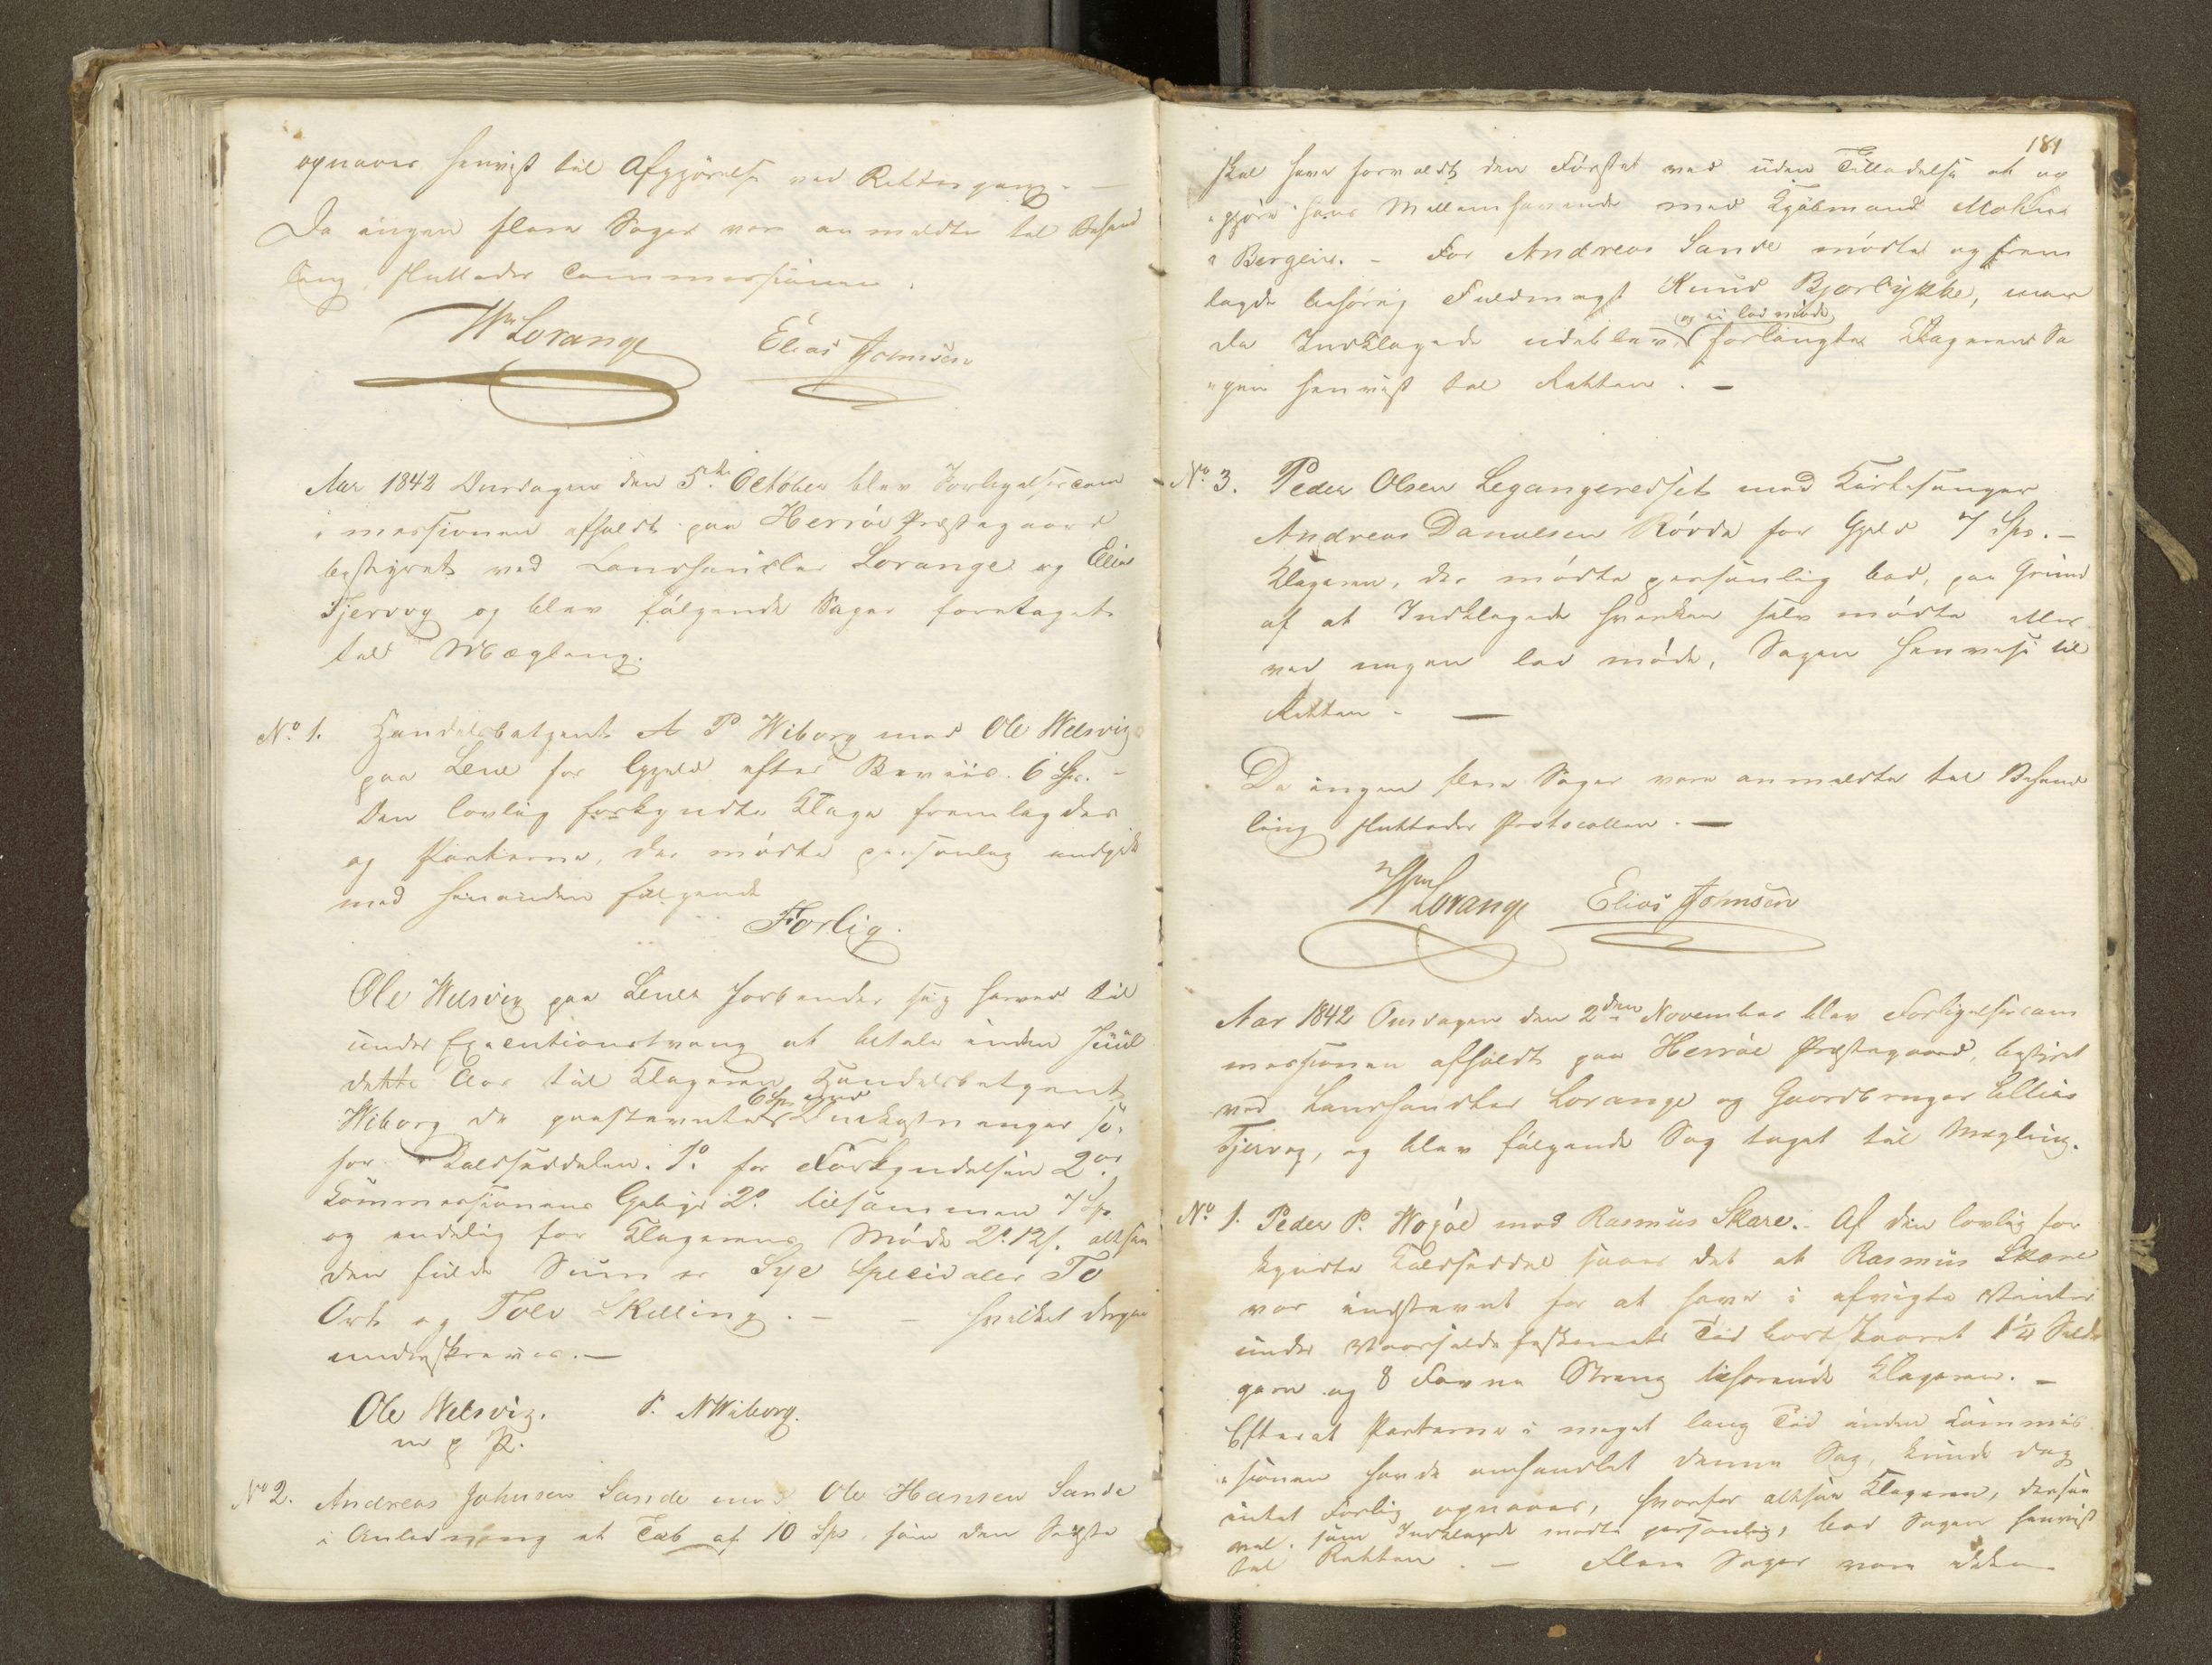 opnaaes henvist til Afgjørelse ved Rettergang. —
Da ingen flere Sager var anmeldte til Behand
ling, sluttedes Commissionen.
Wm Lorange Elias Jomsen
Aar 1842 Onsdagen den 5te October blev Forligelsescom
missionen afholdt paa Herröe Præstegaard
bestyret ved Landhandler Lorange og Elias
Tjervog og blev følgende Sager foretaget
til Mægling.
No 1. Handelsbetjent A P Wiborg mod Ole Welsvig
paa Lene for Gjæld efter Beviis 6 Spd. -
Den lovlig forkyndte Klage fremlagdes
og Parterne, der mødte personlig indgik
med hinanden følgende
Forlig.
Ole Welsvig paa Lene forbinder sig herved til
under Executionstvang at betale inden Juul
dette Aar til Klageren Handelsbetjent
Wiborg de paastevnte 6 Spd Omkostninger
for Kaldseddelen 1o. for Forkyndelsen 2o
Kommissionens Gebyr 2o. tilsammen 1 Spd
og endelig for Klagerens Møde 2o 12s. altsaa
den fulde Sum er Syv Speciedaler To
Ort og Tolv Skilling. — hvilket
underskreves. —
Ole Welsvig. P. N Wiborg.
m p P.
No 2. Andreas Johnsen Sande mod Ole Hansen Sande
i Anledning et Tab af 10 Spd. som den Sidste
181
skal have forvoldt den Første ved uden Tilladelse at op
"gjøre" hans Mellemhavende med Kjøbmand Mohn
i Bergen. - For Andreas Sande mødte og frem
lagde behørig Fuldmagt Knud Bjørlykke, men
da Indklagede udeblev (og ei lod møde) forlangte Klageren Sa
"gen henvist til Retten. —
No. 3. Peder Olsen Legangeredset mod Kirkesanger
Andreas Danielsen Rövde for Gjæld 7 Spd. -
Klageren, der mødte personlig bad, paa Grund
af at Indklagede hverken selv mødte eller
ved nogen lod møde, Sagen henvist til
Retten. —
Da ingen flere Sager vare anmeldte til Behand
ling sluttedes Protocollen. —
Wm Lorange Elias Jomsen
Aar 1842 Onsdagen den 2den November blev Forligelsescom
missionen afholdt paa Herröe Præstegaard, bestyret
ved Landhandler Lorange og Gaardbruger Elias
Tjervog, og blev følgende Sag taget til Mægling.
No. 1. Peder P. Wojöe mod Rasmus Skare. Af den lovlig for
kyndte Kaldseddel saaes det at Rasmus Skare
var indstevnt for at have i afvigte Vinter
under Vaarsildefiskeriets Tid bortskaaret 1½ Silde
garn og 8 Favne Streng tilhørende Klageren. —
Efterat Parterne i meget lang Tid inden Commis
"sionen havde omhandlet denne Sag, kunde dog
intet Forlig opnaaes, hvorfor altsaa Klageren, der saa
vel som Indklagede mødte personlig, bad Sagen henvist
til Retten. — Flere Sager vare ikke